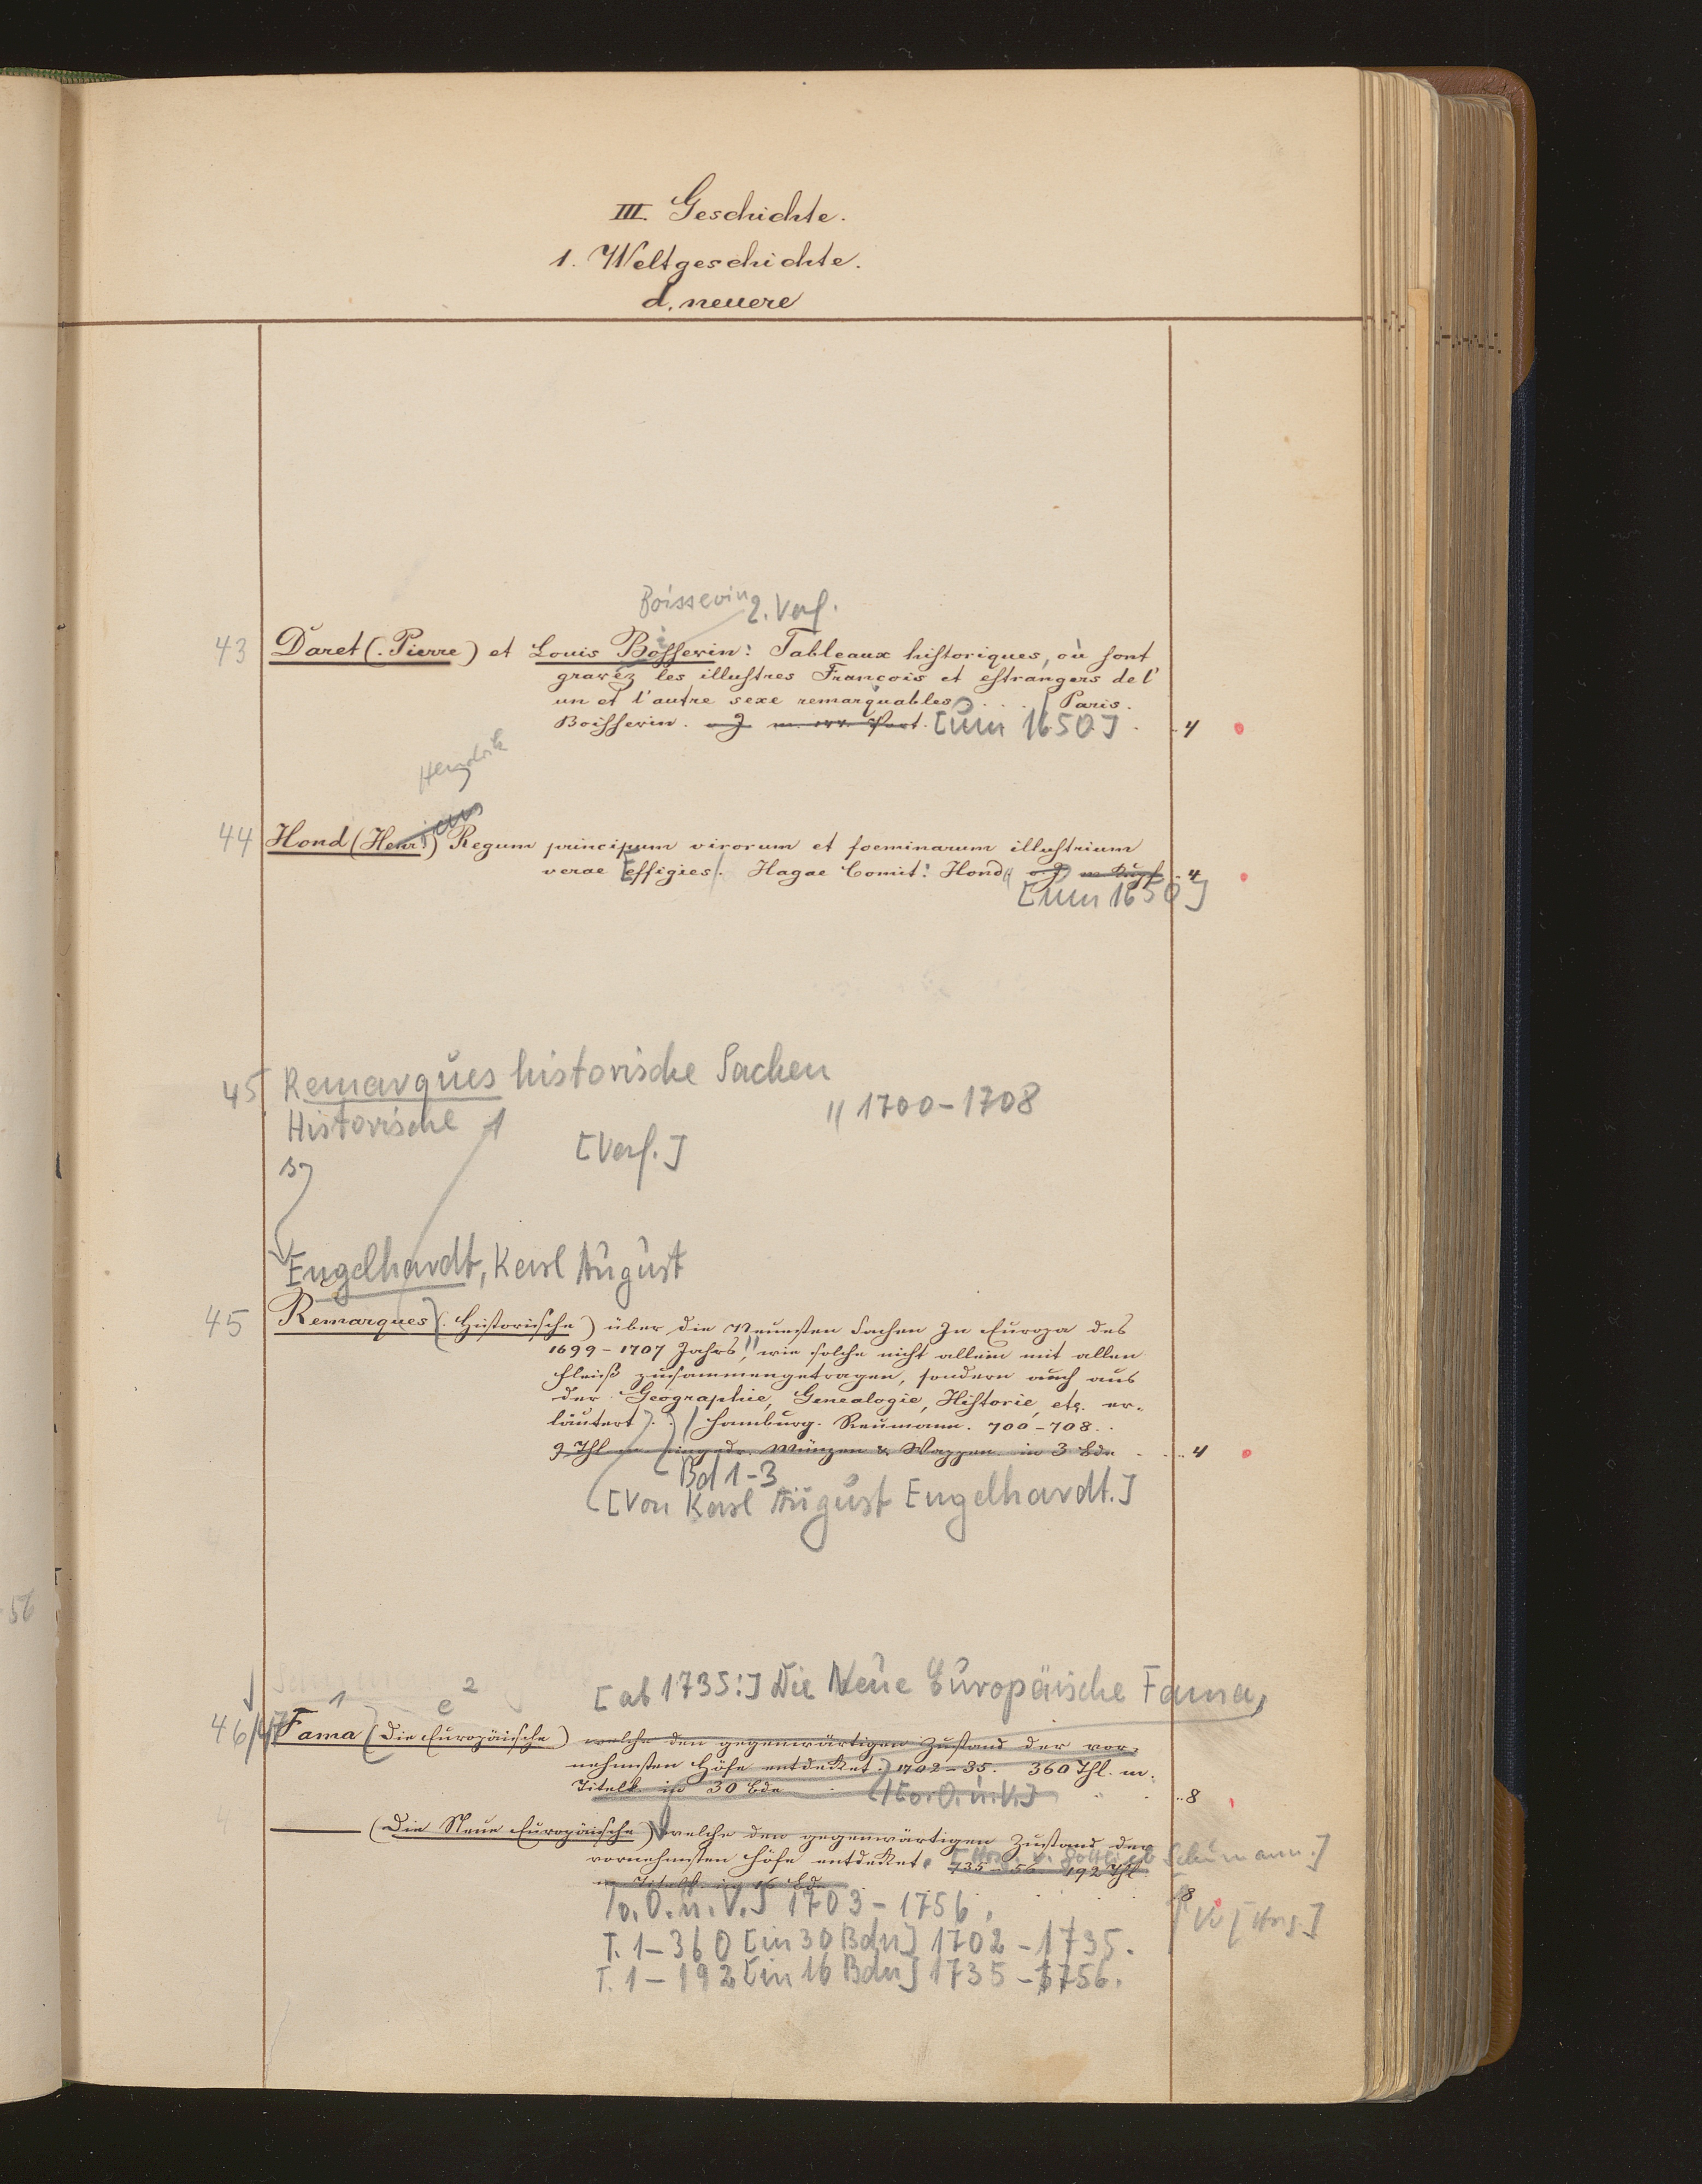 III. Geschichte.
1. Weltgeschichte.
d. neuere
Boissevin 2. Verf.
43 Daret (. Pierre) et Louis Bosserin: Tableaux historiques, où sont
gravez les illustres Francois et estrangers de l'
un et l'autre sexe remarquables .... Paris.
Boisserin. o J. m. Port. [um 1650] . 4
Hendrik
44 Hond (Henr.) Regum principum virorum et foeminarum illustrium
icus
verae effigies. Hagae Comit: Hond o J. m Kupf . 4
[um 1650]
45 Remarques historische Sachen
Historische 1 " 1700-1708
[Verf.]
Engelhardt, Karl August
45 Remarques (. Historische) über die Neuesten Sachen In Europa des
1699-1707 Jahrs, wie solche nicht allein mit allen
Fleiß zusammengetragen, sondern auch aus
der Geographie, Genealogie, Historie, etc. er-
läutert . . Hamburg. Reumann. 700-708..
9 Thl m eingedr. Münzen & Wappen in 3 Bde . . . 4
Bd 1-3
[Von Karl August Engelhardt.]
[ab 1735:] Die Neue Europäische Fama,
1 e 2
46/47 Fama (Die Europäische) welche den gegenwärtigen Zustand der vor-
nehmsten Höfe entdecket. 1702-35. 360 Thl. m.
Titelk. in 30 Bde . . . 8
[o. O. u. V.]
— (Die Neue Europäische) welche den gegenwärtigen Zustand der
vornehmsten Höfe entdecket. 735-56 192 Thl.
[Hrsg. v. Gottlieb Schumann.]
m Titelk. in 16 Bde . . . 8
[o. O. u. V.] 1703-1756. [Hrsg.]
T. 1-360 [in 30 Bdn] 1702-1735.
T. 1-192 [in 16 Bdn] 1735-1756.
56